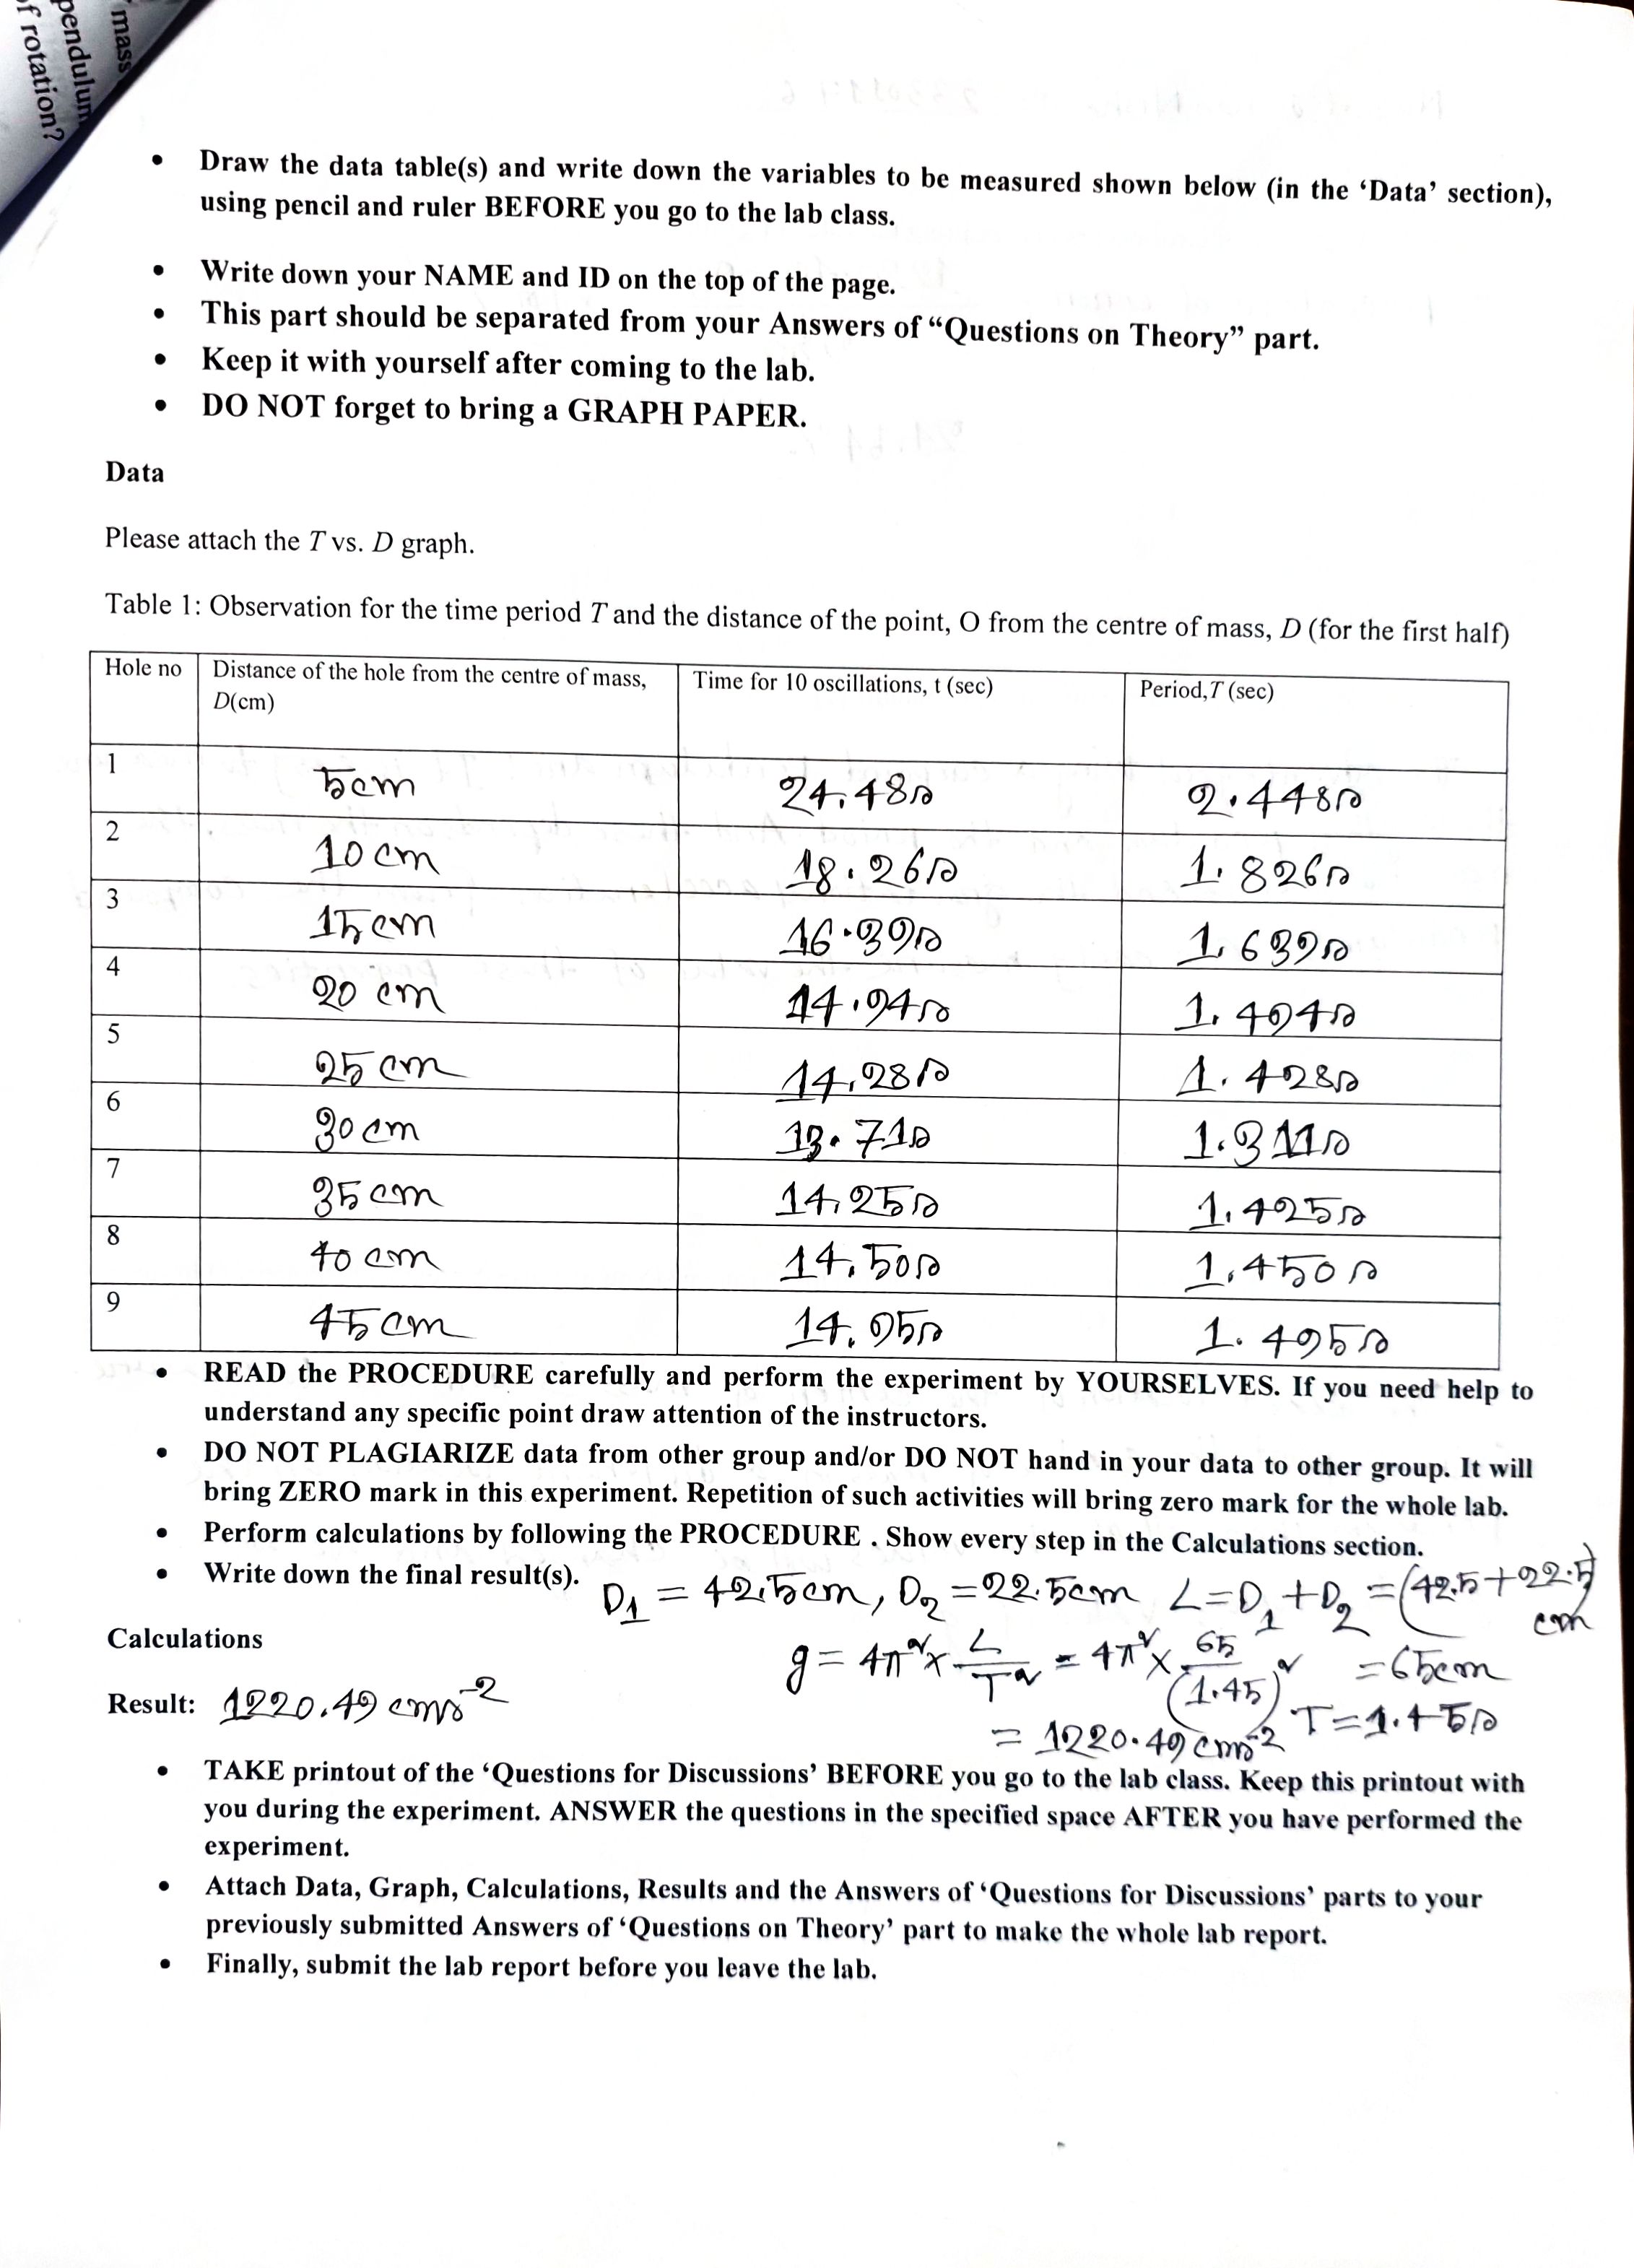 mass
pendulum
f rotation?
• Draw the data table(s) and write down the variables to be measured shown below (in the ‘Data’ section),
using pencil and ruler BEFORE you go to the lab class.
• Write down your NAME and ID on the top of the page.
• This part should be separated from your Answers of “Questions on Theory” part.
• Keep it with yourself after coming to the lab.
• DO NOT forget to bring a GRAPH PAPER.
Data
Please attach the T vs. D graph.
Table 1: Observation for the time period T and the distance of the point, O from the centre of mass, D (for the first half)
Hole no Distance of the hole from the centre of mass, Time for 10 oscillations, t (sec) Period, T (sec)
D(cm)
1 5cm 24.48s 2.448s
2 10 cm 18.26s 1.826s
3 15 cm 16.39s 1.639s
4 20 cm 14.94s 1.494s
5 25 cm 14.28s 1.428s
6 30 cm 13.71s 1.311s
7 35 cm 14.25s 1.425s
8 40 cm 14.50s 1.450s
9 45 cm 14.95s 1.495s
• READ the PROCEDURE carefully and perform the experiment by YOURSELVES. If you need help to
understand any specific point draw attention of the instructors.
• DO NOT PLAGIARIZE data from other group and/or DO NOT hand in your data to other group. It will
bring ZERO mark in this experiment. Repetition of such activities will bring zero mark for the whole lab.
• Perform calculations by following the PROCEDURE . Show every step in the Calculations section.
• Write down the final result(s).
D1 = 42.5cm, D2 = 22.5cm L = D1 + D2 = (42.5 + 22.5) cm
= 65cm
Calculations
g = 4π² × L/T² = 4π² × 65/(1.45)²
T = 1.45s
= 1220.49 cms⁻²
Result: 1220.49 cms⁻²
• TAKE printout of the ‘Questions for Discussions’ BEFORE you go to the lab class. Keep this printout with
you during the experiment. ANSWER the questions in the specified space AFTER you have performed the
experiment.
• Attach Data, Graph, Calculations, Results and the Answers of ‘Questions for Discussions’ parts to your
previously submitted Answers of ‘Questions on Theory’ part to make the whole lab report.
• Finally, submit the lab report before you leave the lab.